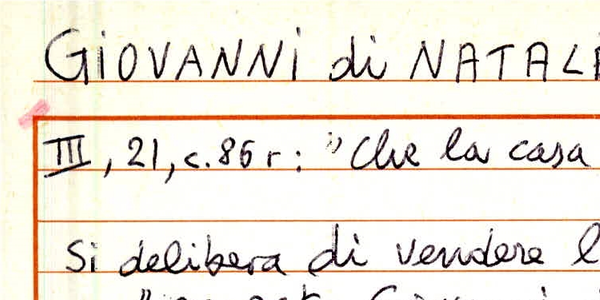 GiOVANNi di NATALE
III, 21, c. 86 r: "Che la casa
Si delibera di vendere l